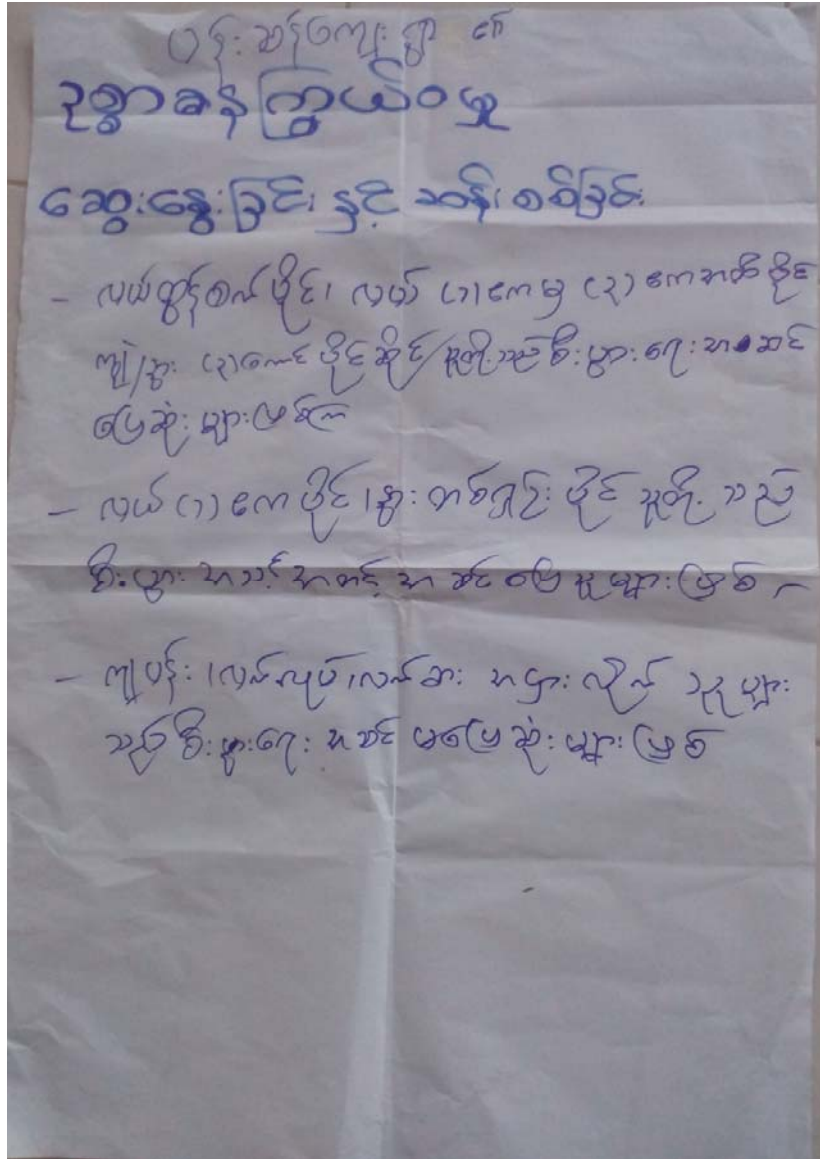 ပန်းဆန်ကျေးရွာ ၏
ဥစ္စာဓနကြွယ်ဝမှု
ဆွေးနွေးခြင်း နှင့် ဆန်းစစ်ခြင်း
- လယ်ထွန်စက်ပိုင်၊ လယ် (၁)ဧကမှ (၃)ဧကအထိပိုင်
ကျွဲ/နွား (၃)ကောင်ပိုင်ဆိုင်သူတို့သည်စီးပွားရေးအဆင်
ပြေဆုံးများဖြစ်ကြ
- လယ် (၁) ဧကပိုင်၊ နွားတစ်ရှဉ်းပိုင်သူတို့သည်
စီးပွားအသင့်အတင့်အဆင်ပြေသူများဖြစ်
- ကျပန်း၊ လက်လုပ်၊ လက်စား အငှားလိုက်သူများ
သည်စီးပွားရေးအဆင်မပြေဆုံးများဖြစ်